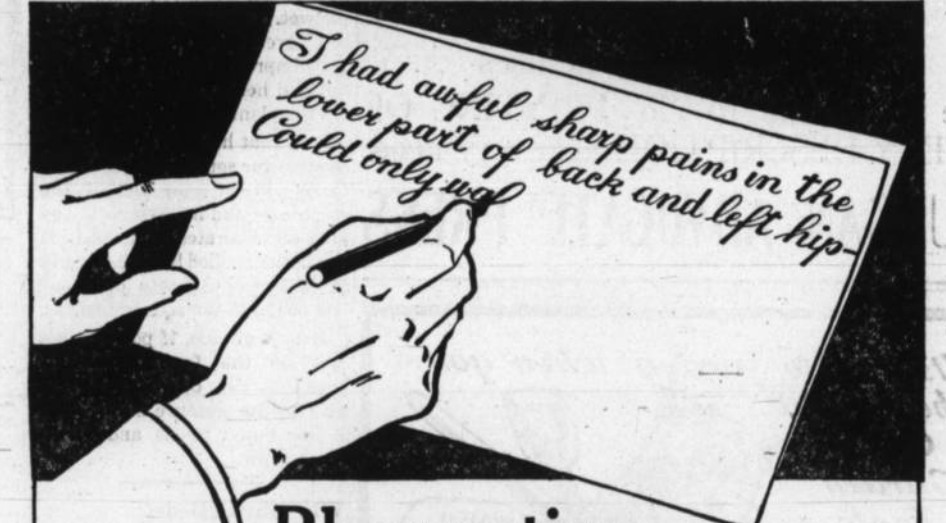 I had awful sharp pains in the
lower part of back and left hip-
Could only wal